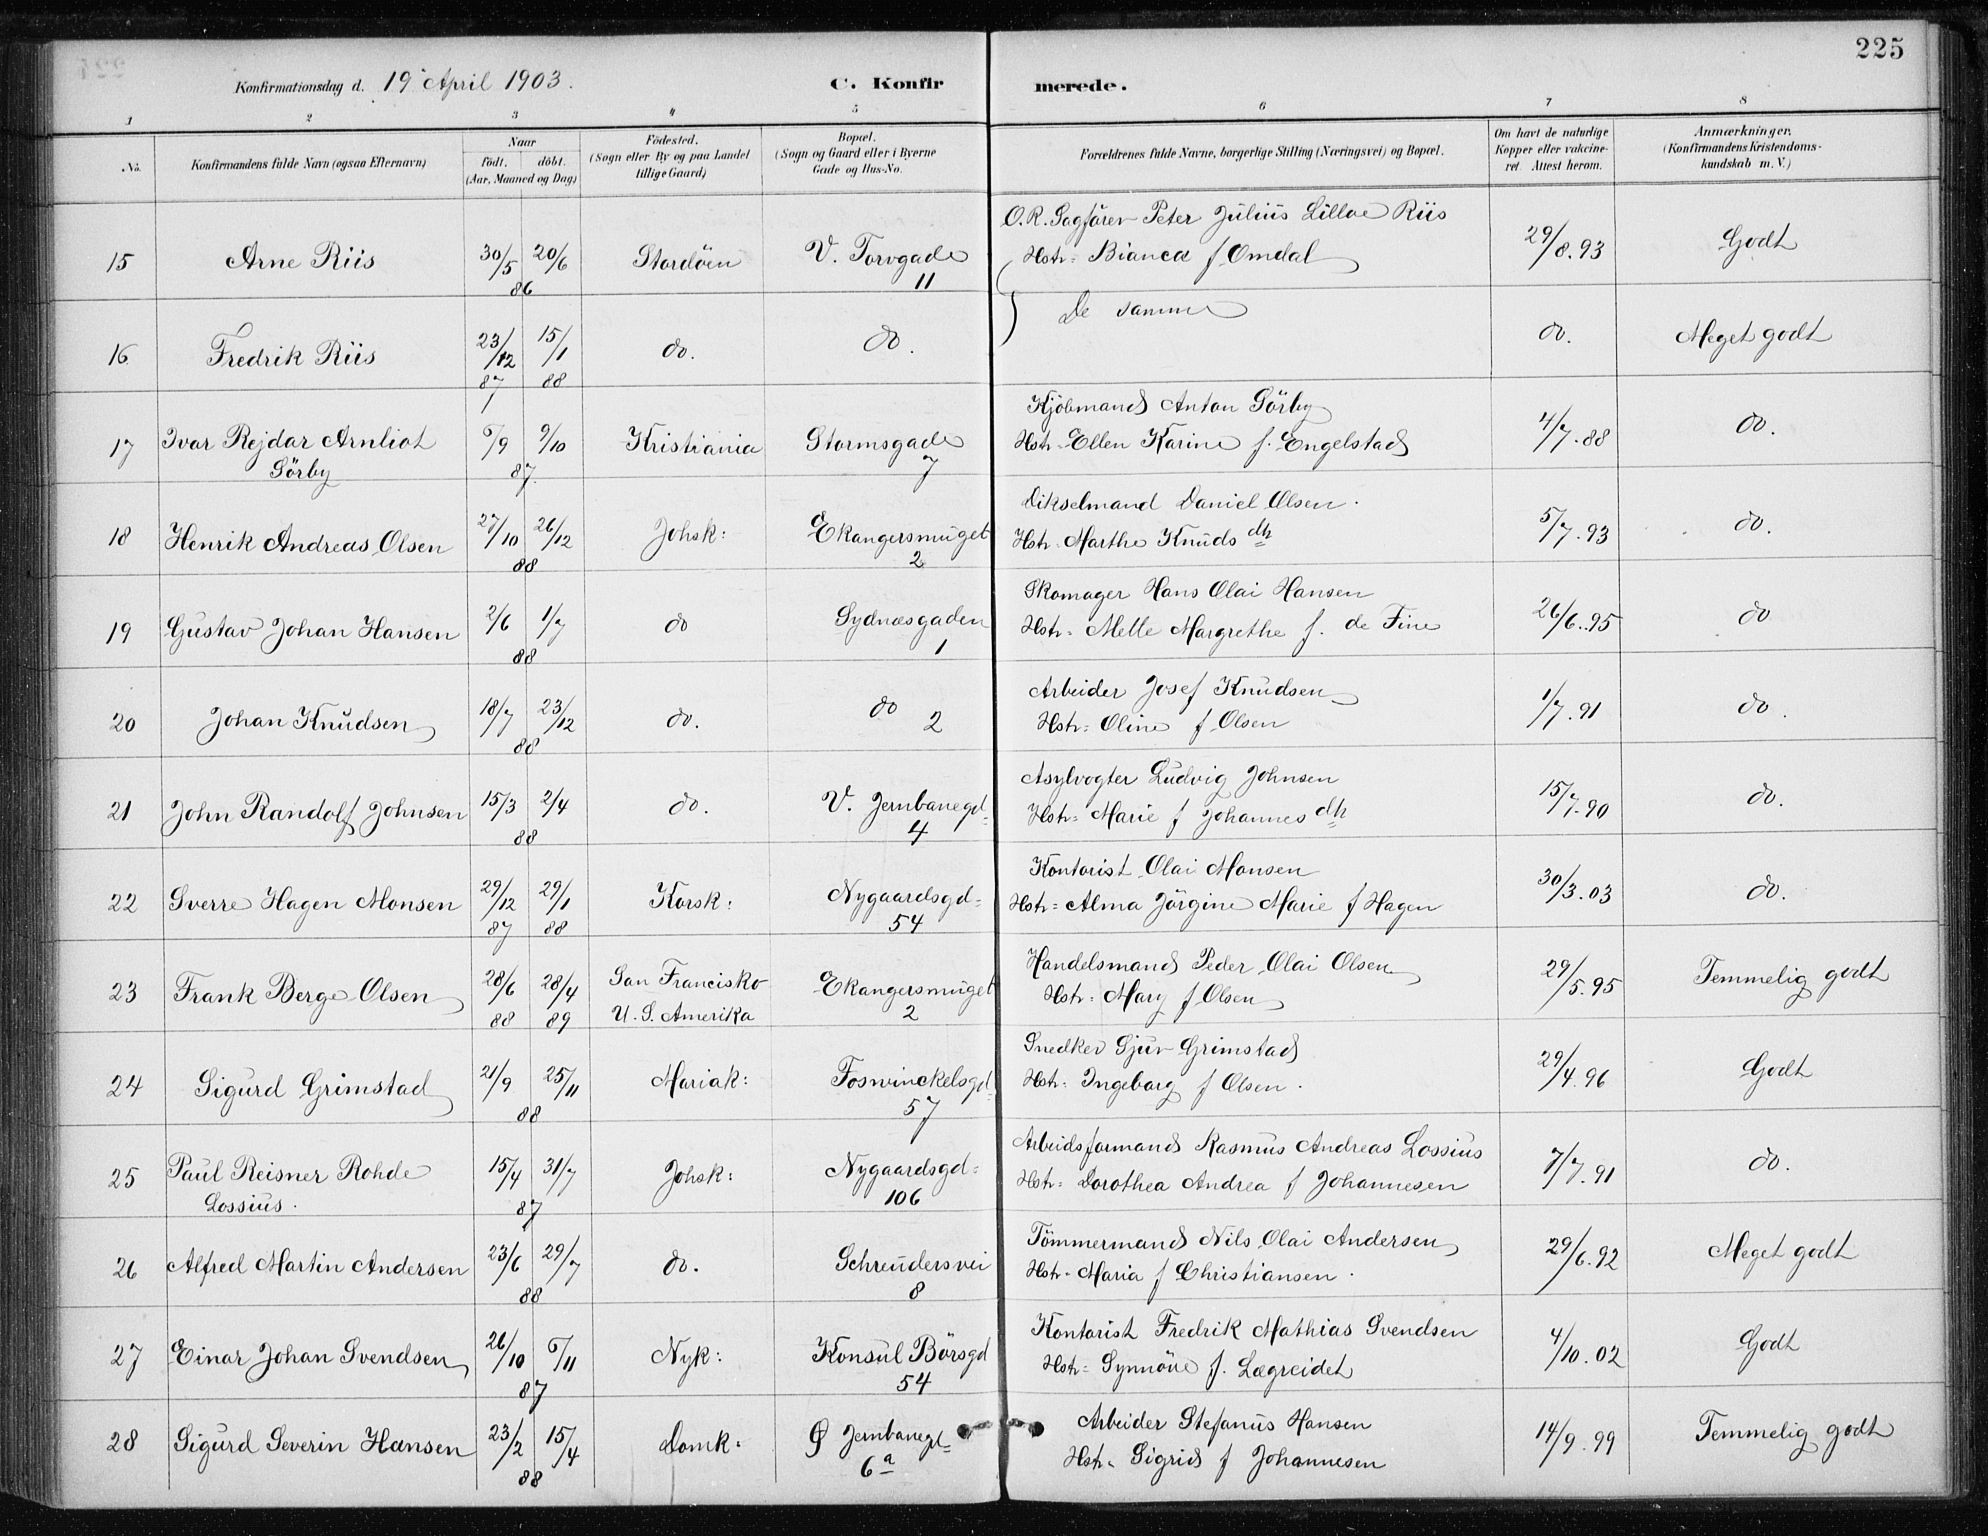 225
Konfirmationsdag d. 19 April 1903.
C. Konfir merede.
1 2 3 4 5 6 7 8
No. Konfirmandens fulde Navn (ogsaa Efternavn) Naar født. døbt. (Aar, Maaned og Dag) Fødested. (Sogn eller By og paa Landet tillige Gaard) Bopæl. (Sogn og Gaard eller i Byerne Gade og Hus-No. Forældrenes fulde Navne, borgerlige Stilling (Næringsvei) og Bopæl. Om havt de naturlige Kopper eller vakcineret. Attest herom. Anmærkninger. (Konfirmandens Kristendomskundskab m. V.)
O.R. Sagfører Peter Julius Lilloe Riis
15 Arne Riis 30/5 20/6 86 Stordøen V. Torvgade 11 Hstr: Bianca f Omdal 29/8.93 Godt
16 Fredrik Riis 23/12 87 15/1 88 do. do. De samme do. Meget godt
Kjøbmand Anton Sørby
17 Ivar Rejdar Arnliot Sørby 6/9 9/10 87 Kristiania Stormsgade 7 Hstr. Ellen Karine f. Engelstad 4/7.88 do.
Dikselmand Daniel Olsen.
18 Henrik Andreas Olsen 27/10 26/12 88 Johsk: Ekangersmuget 2 Hstr. Marthe Knuds dtr 5/7.93 do.
Skomager Hans Olai Hansen
19 Gustav Johan Hansen 2/6 1/7 88 do Sydnæsgaden 1 Hstr. Mette Margrethe f. de Fine 26/6.95 do
Arbeider Josef Knudsen
20 Johan Knudsen 18/7 23/12 88 do. do 2 Hstr: Oline f Olsen 1/7.91 do.
Asylvogter Ludvig Johnsen
21 John Randolf Johnsen 15/3 2/4 88 do. V. Jernbanegd. 4 Hstr: Marie f Johannes dtr 15/7.90 do.
Kontorist Olai Monsen
22 Sverre Hagen Monsen 29/12 87 29/1 88 Korsk: Nygaardsgd. 54 Hstr: Alma Jørgine Marie f Hagen 30/3.03 do.
Handelsmand Peder Olai Olsen
23 Frank Berge Olsen 28/6 88 28/4 89 San Francisko U.S. Amerika Ekangersmuget 2 Hstr: Mary f Olsen 29/5.95 Temmelig godt
Snedker Sjur Grimstad
24 Sigurd Grimstad 21/9 25/11 88 Mariak: Foswinckelsgd. 57 Hstr: Ingeborg f Olsen. 29/4.96 Godt
Arbeidsformand Rasmus Andreas Lossius
25 Paul Reisner Rohde Lossius. 15/4 31/7 87 Johsk: Nygaardsgd. 106 Hstr: Dorothea Andrea f Johannesen 7/7.91 do.
Tømmermand Nils Olai Andersen
26 Alfred Martin Andersen 23/6 29/7 88 do. Schreudersvei 8 Hstr. Maria f Christiansen. 29/6.92 Meget godt
Kontorist Fredrik Mathias Svendsen
27 Einar Johan Svendsen 26/10 6/11 87 Nyk: Konsul Børsgd 54 Hstr: Synnøve f. Lægreidet 4/10.02 Godt
Arbeider Stefanus Hansen
28 Sigurd Severin Hansen 23/2 15/4 88 Domk: Ø Jernbanegd. 6a Hstr. Sigrid f Johannesen 14/9.99 Temmelig godt